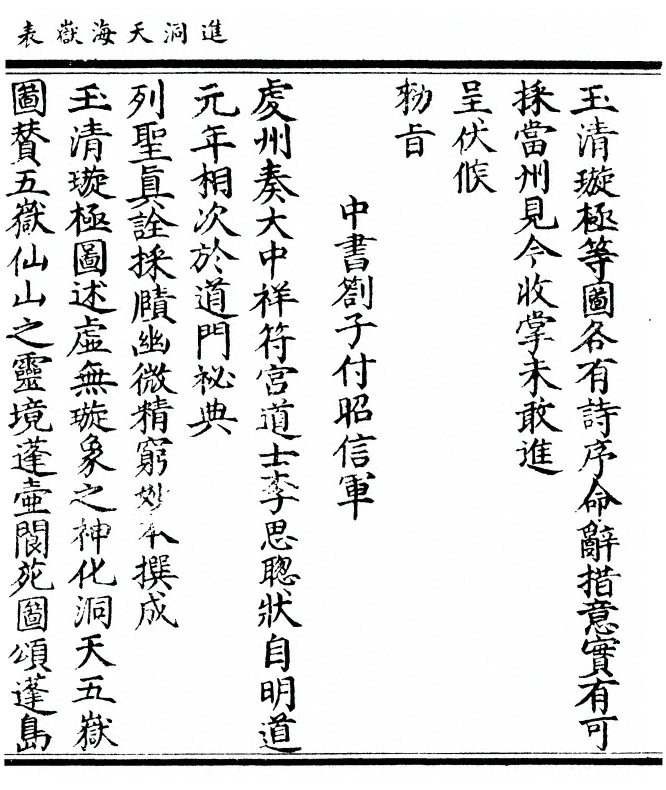 進洞天海嶽表
玉清璇極等圖各有詩序命辭措意實有可
採當州見今收掌未敢進
呈伏候
勑旨
中書劄子付昭信軍
虔州奏大中祥符宮道士李思聰狀自明道
元年相次於道門祕典
列聖眞詮採賾幽微精窮妙本撰成
玉清璇極圖述虛無璇象之神化洞天五嶽
圖贊五嶽仙山之靈境蓬壺閬苑圖頌蓬島